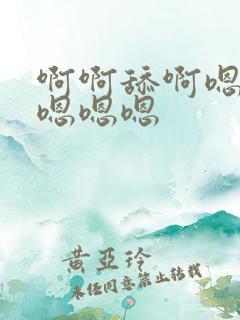 啊啊舔啊嗯
嗯嗯嗯
黄亞玲
未经同意禁止转载